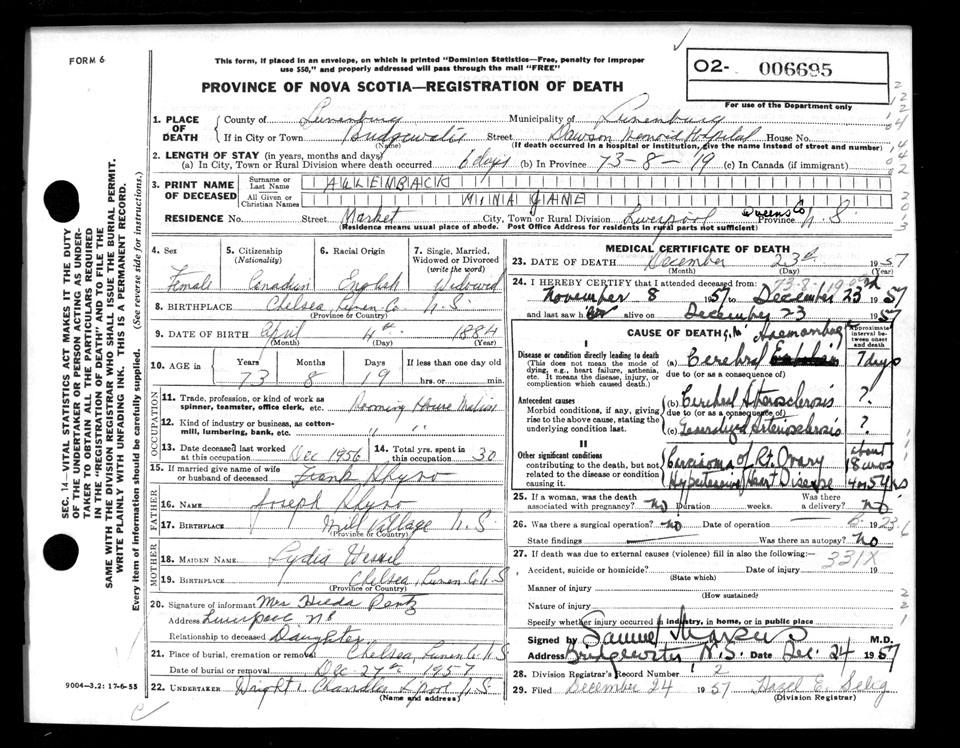 FORM 6
This form, if placed in an envelope, on which is printed "Dominion Statistics—Free, penalty for improper
use $50," and properly addressed will pass through the mail "FREE"
O2- 006695
For use of the Department only
PROVINCE OF NOVA SCOTIA—REGISTRATION OF DEATH
SEC. 14—VITAL STATISTICS ACT MAKES IT THE DUTY
OF THE UNDERTAKER OR PERSON ACTING AS UNDER-
TAKER TO OBTAIN ALL THE PARTICULARS REQUIRED
IN THE "REGISTRATION OF DEATH" AND TO FILE THE
SAME WITH THE DIVISION REGISTRAR WHO SHALL ISSUE THE BURIAL PERMIT.
WRITE PLAINLY WITH UNFADING INK. THIS IS A PERMANENT RECORD.
Every item of information should be carefully supplied. (See reverse side for instructions.)
1. PLACE OF DEATH
County of Lunenburg Municipality of Lunenburg
If in City or Town Bridgewater Street Dawson Memorial Hospital House No.
(Name) (If death occurred in a hospital or institution, give the name instead of street and number)
2. LENGTH OF STAY (in years, months and days)
(a) In City, Town or Rural Division where death occurred 6 days (b) In Province 73-8-19 (c) In Canada (if immigrant)
3. PRINT NAME OF DECEASED
Surname or Last Name ALLENBACK
All Given or Christian Names MINA JANE
RESIDENCE No. Street Market City, Town or Rural Division Liverpool Queens Co Province N.S.
(Residence means usual place of abode. Post Office Address for residents in rural parts not sufficient)
4. Sex 5. Citizenship (Nationality) 6. Racial Origin 7. Single, Married, Widowed or Divorced (write the word)
Female Canadian English Widowed
8. BIRTHPLACE Chelsea, Lunen Co. N.S.
(Province or Country)
9. DATE OF BIRTH April 4th 1884
(Month) (Day) (Year)
10. AGE in Years Months Days If less than one day old
73 8 19 hrs. or min.
OCCUPATION
11. Trade, profession, or kind of work as
spinner, teamster, office clerk, etc. Rooming House Matron
12. Kind of industry or business, as cotton-
mill, lumbering, bank, etc. " " "
13. Date deceased last worked at this occupation Dec 1956 14. Total yrs. spent in this occupation 30
15. If married give name of wife
or husband of deceased Frank Rhyno
FATHER
16. NAME Joseph Rhyno
17. BIRTHPLACE Mill Village N.S.
(Province or Country)
MOTHER
18. MAIDEN NAME. Lydia
19. BIRTHPLACE Chelsea, Lunen Co. N.S
(Province or Country)
20. Signature of informant Mrs Hilda Rentz
Address Liverpool NS
Relationship to deceased Daughter
21. Place of burial, cremation or removal Chelsea, Lunen Co. N.S.
Date of burial or removal Dec 27th 1957
22. UNDERTAKER Wright Chandler L'pool N.S.
(Name and address)
9004-3,2: 17-6-55
MEDICAL CERTIFICATE OF DEATH
23. DATE OF DEATH December 23rd 1957
(Month) (Day) (Year)
73-8-19
24. I HEREBY CERTIFY that I attended deceased from:
November 8 1957 to December 23rd 1957
and last saw her alive on December 23 1957
CAUSE OF DEATH Haemorrhage
Approximate interval between onset and death
I
Disease or condition directly leading to death
(This does not mean the mode of dying, e.g., heart failure, asthenia, etc. It means the disease, injury, or complication which caused death.)
(a) Cerebral 7 days
due to (or as a consequence of)
Antecedent causes
Morbid conditions, if any, giving rise to the above cause, stating the underlying condition last.
(b) Cerebral Atherosclerosis ?
due to (or as a consequence of)
(c) Generalized Arteriosclerosis ?
II
Other significant conditions
contributing to the death, but not related to the disease or condition causing it.
Carcinoma of Rt. Ovary about 18 mos
Hypertensive Heart Disease 4 or 5 yrs
25. If a woman, was the death associated with pregnancy? No Duration weeks. Was there a delivery? No
26. Was there a surgical operation? No Date of operation 19
State findings Was there an autopsy? No
27. If death was due to external causes (violence) fill in also the following:—
331X
Accident, suicide or homicide? Date of injury 19
(State which)
Manner of injury
(How sustained)
Nature of injury
Specify whether injury occurred in industry, in home, or in public place
Signed by Samuel Marcus M.D.
Address Bridgewater N.S. Date Dec. 24 1957
28. Division Registrar's Record Number 2
29. Filed December 24 1957 Hazel E. Selig
(Division Registrar)